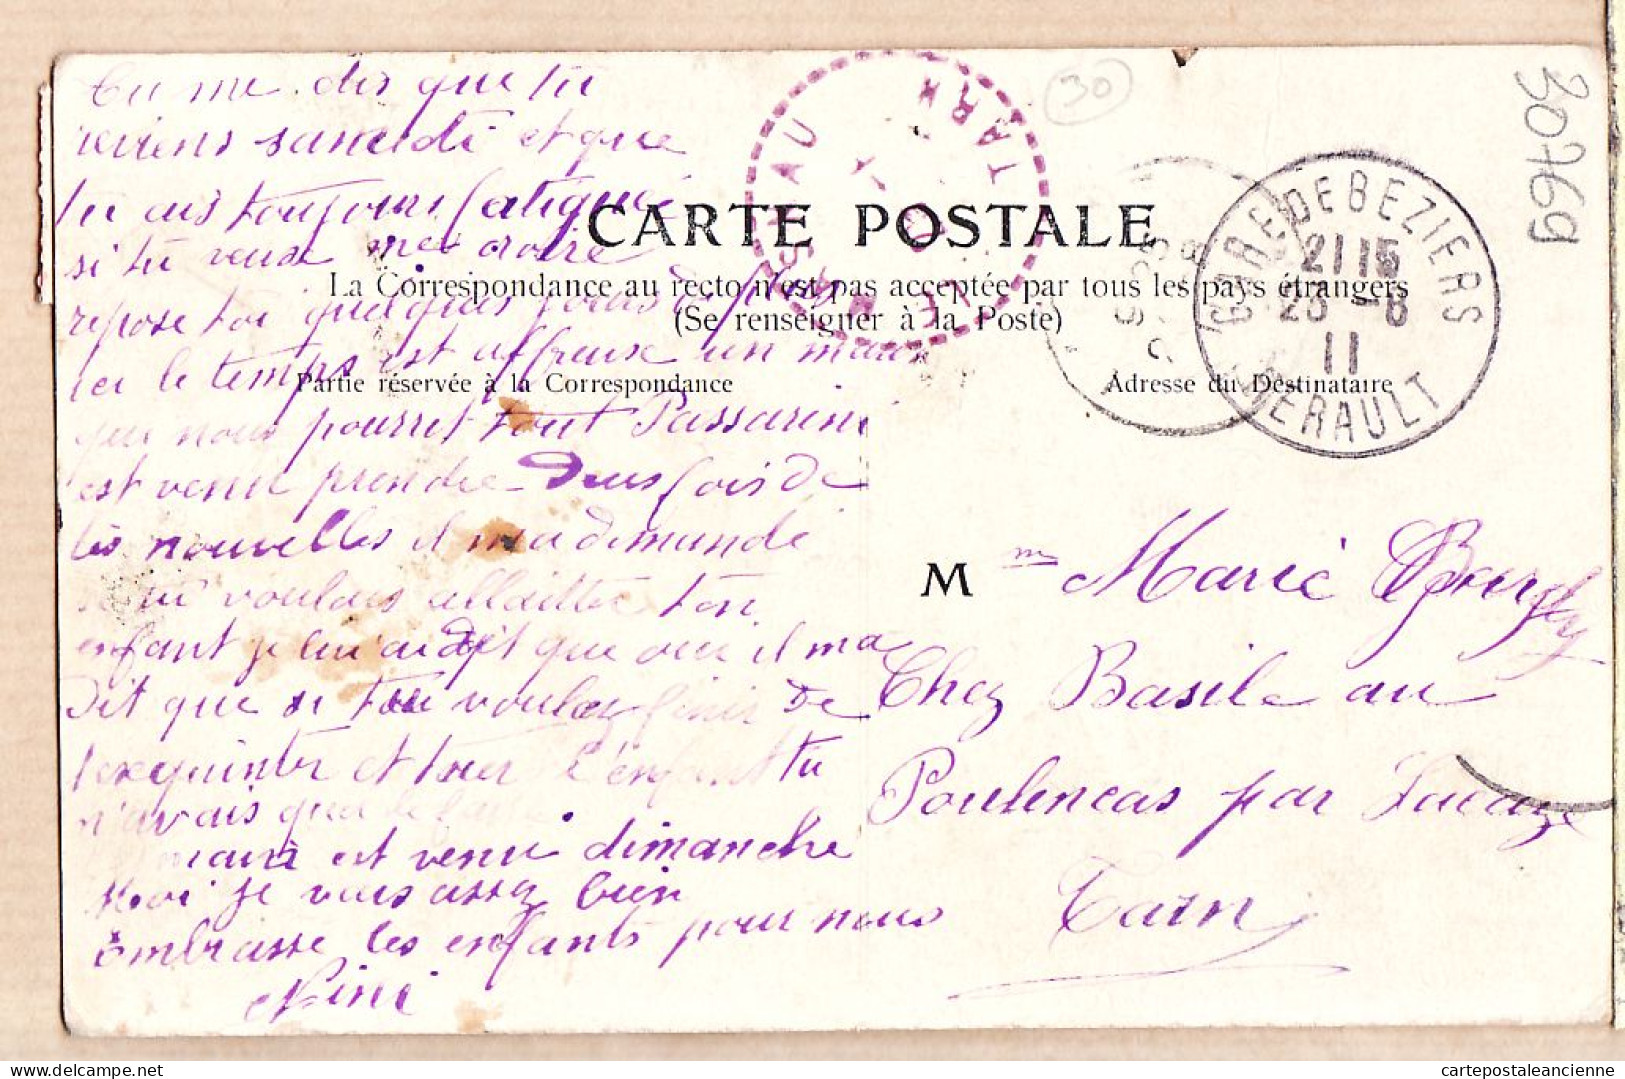 Tu me dis que tu
reviens samedi et que
tu ais toujours fatigué
si tu veux me croire
repose toi quelques jours de plus
ici le temps est affreux un mais
que nous pourrit tout Passarini
est venu prendre deus fois de
tes nouvelles il m'a demandé
si tu voulais allaitter ton
enfant je lui ai dit que oui il ma
dit que si tu voulez finir de
t'exquinter et tuer l'enfant tu
n'avais que le faire
Marie est venu dimanche
Moi je vous assez bien
Embrasse les enfants pour nous
Nini
CARTE POSTALE
La Correspondance au recto n'est pas acceptée par tous les pays étrangers
(Se renseigner à la Poste)
Partie réservée à la Correspondance
Adresse du Destinataire
TARN
GARE DE BEZIERS
21 15
25 -8
11
HERAULT
30
30769
Mme Marie
Chez Basile au
Poulencas par Lacaze
Tarn
cartepostaleancienne
cartepostaleancienne.com